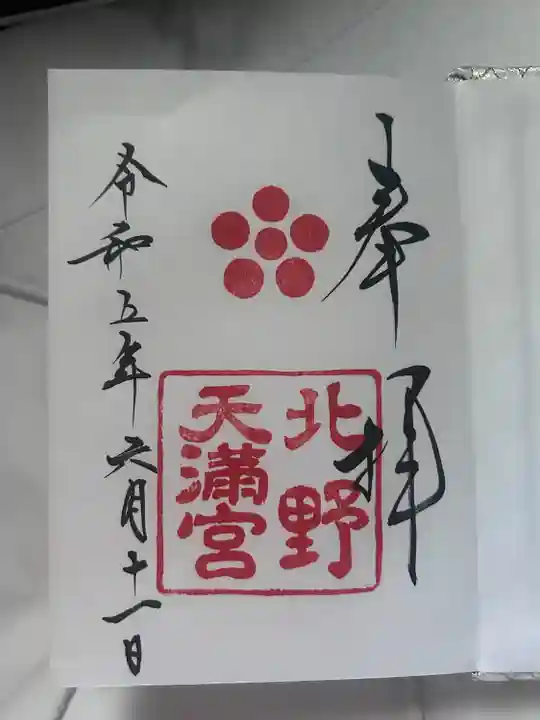 奉拝
北野
天満宮
令和五年六月十一日